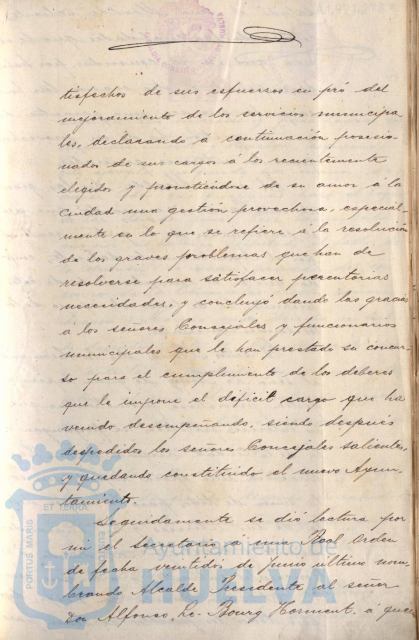 tisfechos de sus esfuerzos en pró del
mejoramiento de los servicios municipa-
les, declarando á continuación posesio-
nados de sus cargos á los recientemente
elegidos y prometiéndose de su amor á la
Ciudad una gestión provechosa, especial-
mente en lo que se refiere á la resolución
de los graves problemas que han de
resolverse para satisfacer perentorias
necesidades, y concluyó dando las gracias
á los señores Concejales y funcionarios
municipales que le han prestado su concur-
so para el cumplimiento de los deberes
que le impone el dificil cargo que ha
venido desempeñando, siendo después
despedidos los señores Concejales salientes,
y quedando constituido el nuevo Ayun-
tamiento.
Seguidamente se dió lectura por
mi el Secretario á una Real Orden
de fecha veintidos de junio ultimo nom-
brando Alcalde Presidente al señor
Don Alfonso Le-Bourg Horment. á que
PORTUS MARIS ET TERRAE
Ayuntamiento de
HUELVA